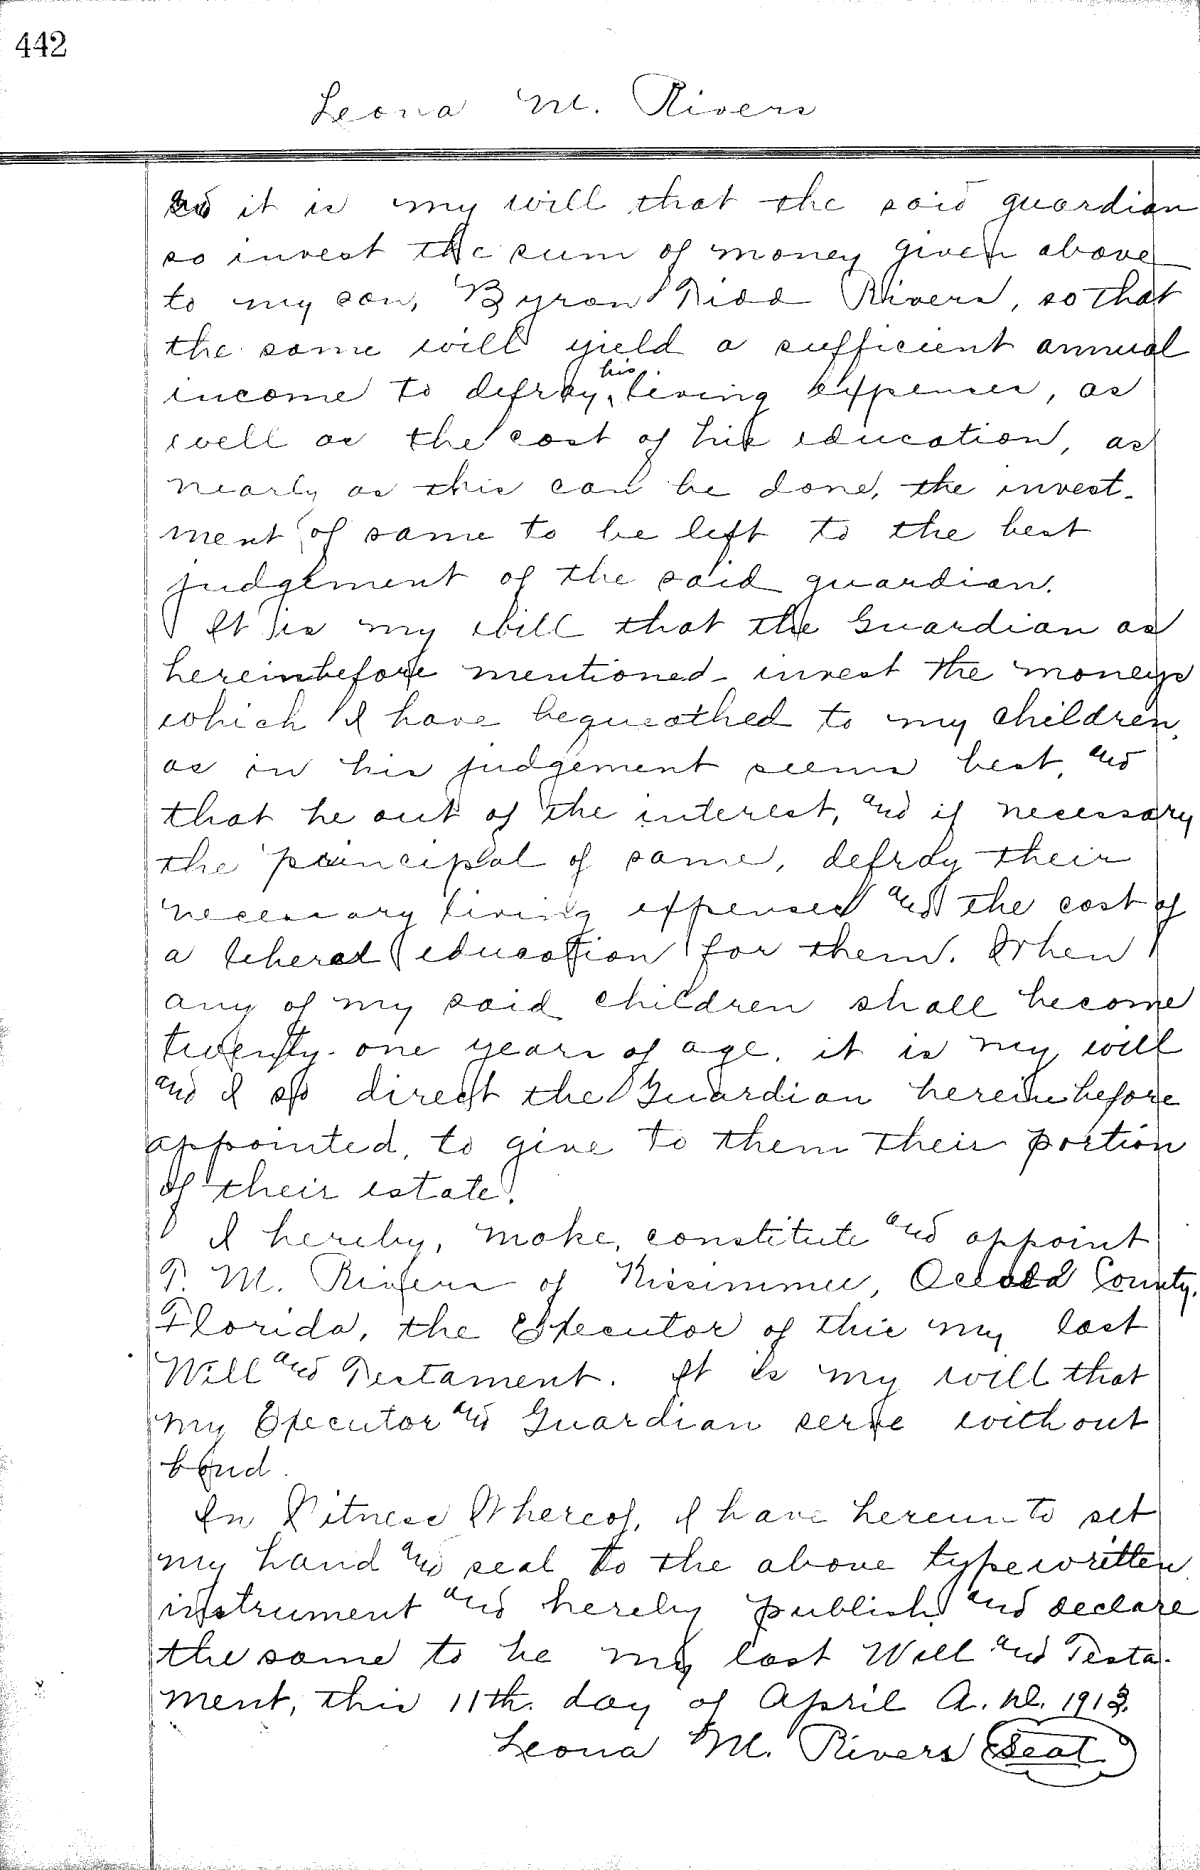 442
Leona M. Rivers
and it is my will that the said guardian
so invest the sum of money given above
to my son, Byron Kidd Rivers, so that
the same will yield a sufficient annual
income to defray his living expenses, as
well as the cost of his education, as
nearly as this can be done, the invest-
ment of same to be left to the best
judgement of the said guardian.
It is my will that the Guardian as
hereinbefore mentioned invest the moneys
which I have bequeathed to my children,
as in his judgement seems best, and
that he out of the interest, and if necessary
the principal of same, defray their
necessary living expenses and the cost of
a liberal education for them. When
any of my said children shall become
twenty-one years of age, it is my will
and I so direct the Guardian hereinbefore
appointed, to give to them their portion
of their estate.
I hereby, make, constitute and appoint
P. M. Rivers of Kissimmee, Oceola County,
Florida, the Executor of this my last
Will and Testament. It is my will that
my Executor and Guardian serve without
bond.
In Witness Whereof, I have hereunto set
my hand and seal to the above typewritten
instrument and hereby publish and declare
the same to be my last Will and Testa-
ment, this 11th. day of April A.D. 1913.
Leona M. Rivers Seal